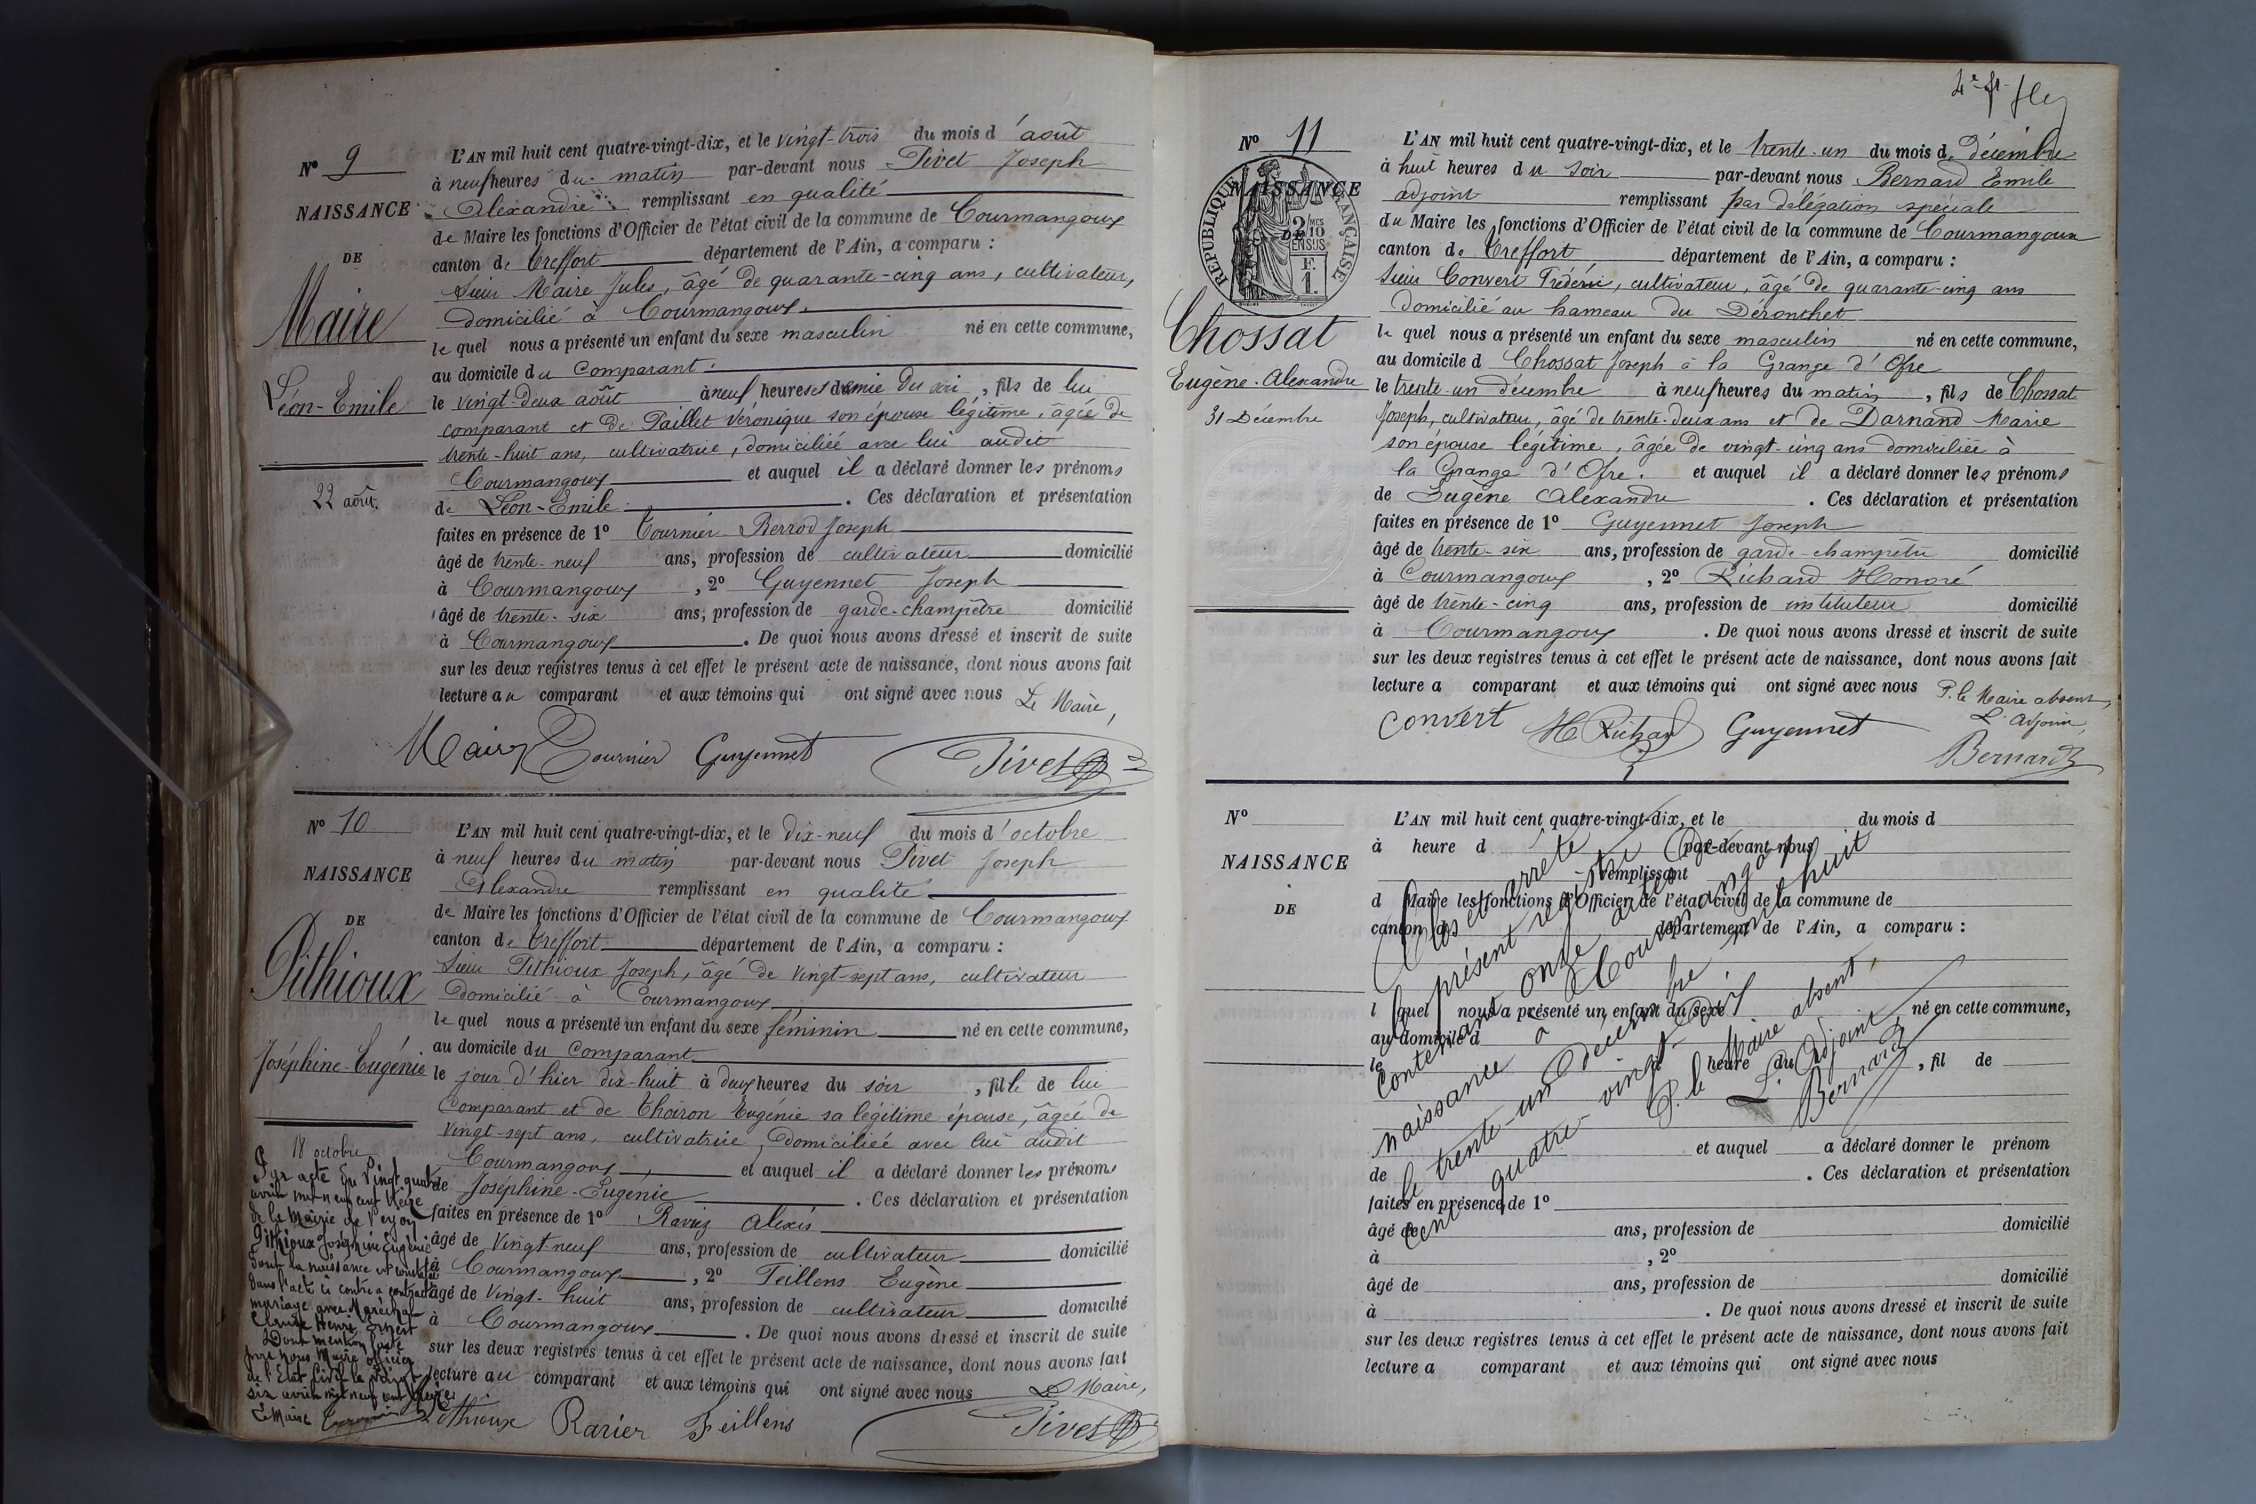 Nº 9
NAISSANCE
DE
Maire
Léon-Emile
22 août.
L'AN mil huit cent quatre-vingt-dix, et le vingt-trois du mois d'août
à neuf heures du matin par-devant nous Pivet Joseph
Alexandre remplissant en qualité
de Maire les fonctions d'Officier de l'état civil de la commune de Courmangoux
canton de Treffort département de l'Ain, a comparu :
Sieur Maire Jules, âgé de quarante-cinq ans, cultivateur,
domicilié à Courmangoux,
lequel nous a présenté un enfant du sexe masculin né en cette commune,
au domicile du comparant.
le vingt-deux août à neuf heures et demie du soir, fils de lui
comparant et de Paillet Véronique son épouse légitime, âgée de
trente-huit ans, cultivatrice, domiciliée avec lui audit
Courmangoux et auquel il a déclaré donner les prénoms
de Léon-Emile. Ces déclaration et présentation
faites en présence de 1º Tournier Perrod Joseph
âgé de trente-neuf ans, profession de cultivateur domicilié
à Courmangoux, 2º Guyennet Joseph
âgé de trente-six ans, profession de garde-champêtre domicilié
à Courmangoux. De quoi nous avons dressé et inscrit de suite
sur les deux registres tenus à cet effet le présent acte de naissance, dont nous avons fait
lecture au comparant et aux témoins qui ont signé avec nous Le Maire,
Maire Tournier Guyennet Pivet
Nº 10
NAISSANCE
DE
Pithioux
Joséphine-Eugénie
18 octobre
Par acte du vingt quatre
avril mil neuf cent treize
de la Mairie de
Pithioux Joséphine Eugénie
dont la naissance est constatée
dans l'acte ci contre a contracté
mariage avec Maréchal
Claude Henri Ernest
Dont mention faite
par nous Maire officier
de l'Etat Civil le vingt
six avril mil neuf cent treize
Le Maire
L'AN mil huit cent quatre-vingt-dix, et le dix-neuf du mois d'octobre
à neuf heures du matin par-devant nous Pivet Joseph
Alexandre remplissant en qualité
de Maire les fonctions d'Officier de l'état civil de la commune de Courmangoux
canton de Treffort département de l'Ain, a comparu :
Sieur Pithioux Joseph, âgé de vingt-sept ans, cultivateur
domicilié à Courmangoux
lequel nous a présenté un enfant du sexe féminin né en cette commune,
au domicile du comparant
le jour d'hier dix-huit à deux heures du soir, fille de lui
comparant et de Thoiron Eugénie sa légitime épouse, âgée de
vingt-sept ans, cultivatrice, domiciliée avec lui audit
Courmangoux, et auquel il a déclaré donner les prénoms
de Joséphine-Eugénie. Ces déclaration et présentation
faites en présence de 1º Ravier Alexis
âgé de vingt-neuf ans, profession de cultivateur domicilié
à Courmangoux, 2º Feillens Eugène
âgé de vingt-huit ans, profession de cultivateur domicilié
à Courmangoux. De quoi nous avons dressé et inscrit de suite
sur les deux registres tenus à cet effet le présent acte de naissance, dont nous avons fait
lecture au comparant et aux témoins qui ont signé avec nous Le Maire,
Pithioux Ravier Feillens Pivet
Nº 11
NAISSANCE
DE
RÉPUBLIQUE FRANÇAISE
2/10
EN SUS
F.
1.
Chossat
Eugène-Alexandre
31 Décembre
L'AN mil huit cent quatre-vingt-dix, et le trente-un du mois de décembre
à huit heures du soir par-devant nous Bernard Emile
adjoint remplissant par délégation spéciale
du Maire les fonctions d'Officier de l'état civil de la commune de Courmangoux
canton de Treffort département de l'Ain, a comparu :
Sieur Convert Frédéric, cultivateur, âgé de quarante-cinq ans
domicilié au hameau du Déronthet
lequel nous a présenté un enfant du sexe masculin né en cette commune,
au domicile d Chossat Joseph à la Grange d'Ofre
le trente-un décembre à neuf heures du matin, fils de Chossat
Joseph, cultivateur, âgé de trente-deux ans et de Darnand Marie
son épouse légitime, âgée de vingt-cinq ans domiciliée à
la Grange d'Ofre. et auquel il a déclaré donner les prénoms
de Eugène Alexandre. Ces déclaration et présentation
faites en présence de 1º Guyennet Joseph
âgé de trente-six ans, profession de garde-champêtre domicilié
à Courmangoux, 2º Richard Honoré
âgé de trente-cinq ans, profession de instituteur domicilié
à Courmangoux. De quoi nous avons dressé et inscrit de suite
sur les deux registres tenus à cet effet le présent acte de naissance, dont nous avons fait
lecture a comparant et aux témoins qui ont signé avec nous P. le Maire absent,
L'Adjoint,
Convert H Richard Guyennet Bernard
Nº
NAISSANCE
DE
L'AN mil huit cent quatre-vingt-dix, et le du mois d
à heure d par-devant nous
remplissant
d Maire les fonctions d'Officier de l'état civil de la commune de
canton d département de l'Ain, a comparu :
l quel nous a présenté un enfant du sexe né en cette commune,
au domicile d
le à heure du, fil de
et auquel a déclaré donner le prénom
de . Ces déclaration et présentation
faites en présence de 1º
âgé de ans, profession de domicilié
à , 2º
âgé de ans, profession de domicilié
à . De quoi nous avons dressé et inscrit de suite
sur les deux registres tenus à cet effet le présent acte de naissance, dont nous avons fait
lecture a comparant et aux témoins qui ont signé avec nous
Clos et arrêté le
présent registre
contenant onze actes de
naissance à Courmangoux
le trente-un décembre mil huit
cent quatre-vingt-dix
P. le Maire absent,
L'Adjoint
Bernard